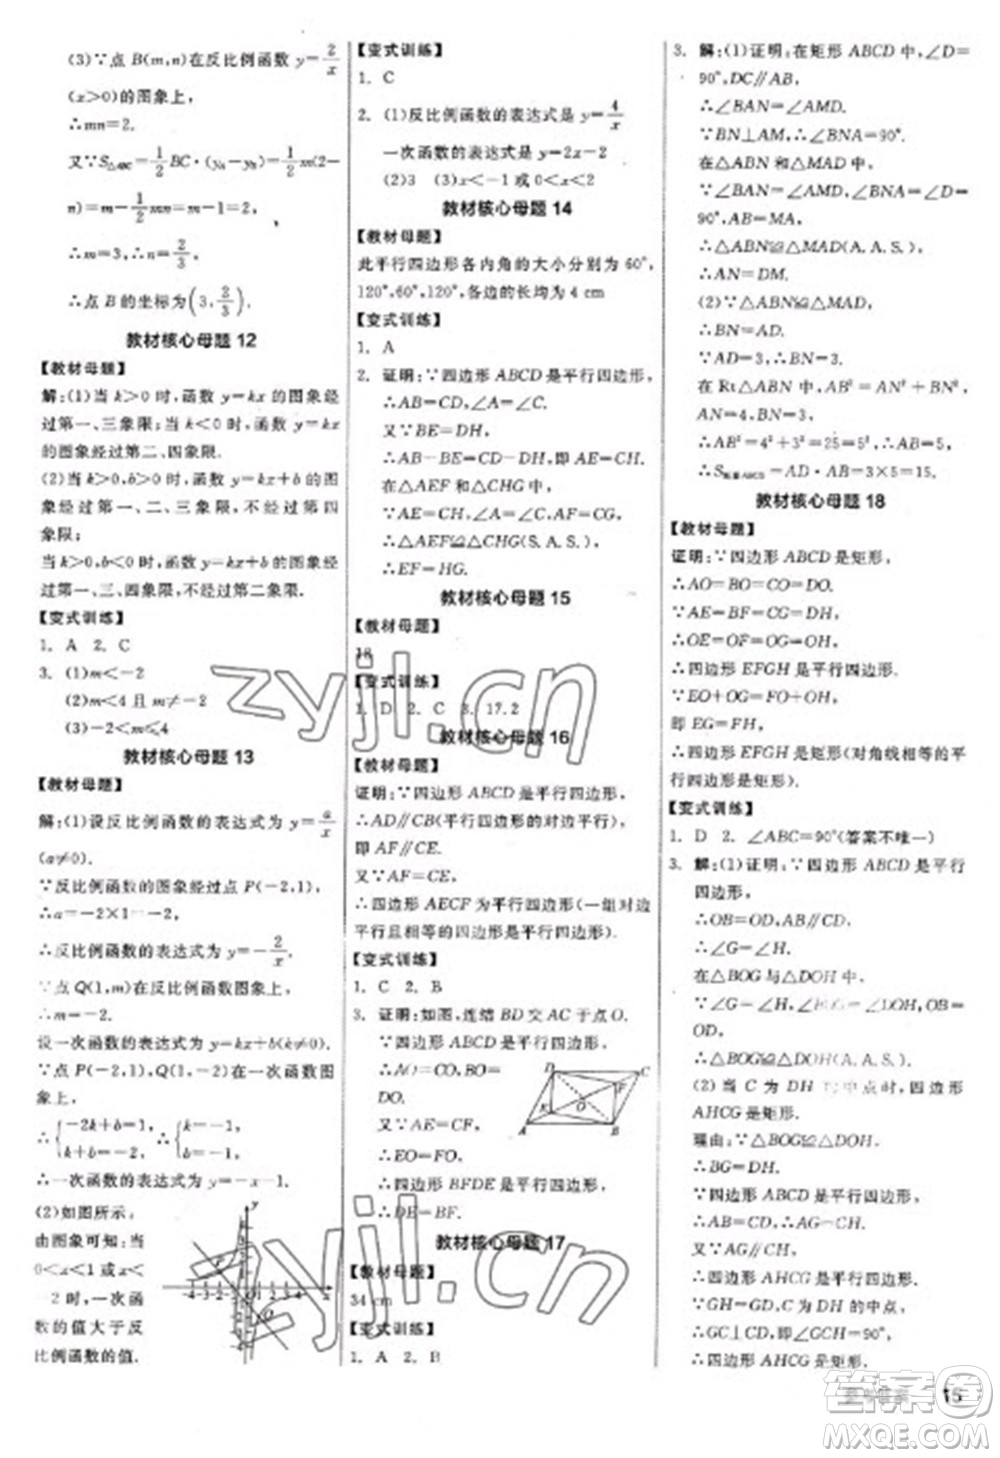 (3)∵点 B(m,n)在反比例函数 y=2/x
(x>0)的图象上,
∴mn=2.
又∵S△ABC=1/2BC·(yA-yB)=1/2m(2-
n)=m-1/2mn=m-1=2.
∴m=3,∴n=2/3.
∴点 B 的坐标为(3,2/3).
教材核心母题 12
【教材母题】
解:(1)当 k>0 时,函数 y=kx 的图象经
过第一、三象限;当 k<0 时,函数 y=kx
的图象经过第二、四象限.
(2)当 k>0,b>0 时,函数 y=kx+b 的图
象经过第一、二、三象限,不经过第四
象限;
当 k>0,b<0 时,函数 y=kx+b 的图象经
过第一、三、四象限,不经过第二象限.
【变式训练】
1. A 2. C
3. (1)m<-2
(2)m<4 且 m≠-2
(3)-2<m≤4
教材核心母题 13
【教材母题】
解:(1)设反比例函数的表达式为 y=a/x
(a≠0).
∵反比例函数的图象经过点 P(-2,1),
∴a=-2×1=-2.
∴反比例函数的表达式为 y=-2/x.
∵点 Q(1,m)在反比例函数图象上,
∴m=-2.
设一次函数的表达式为 y=kx+b(k≠0).
∵点 P(-2,1),Q(1,-2)在一次函数图
象上,
∴{-2k+b=1, k+b=-2. ∴{k=-1, b=-1.
∴一次函数的表达式为 y=-x-1.
(2)如图所示,
由图象可知:当
0<x<1 或 x<
-2 时,一次函
数的值大于反
比例函数的值.
【变式训练】
1. C
2. (1)反比例函数的表达式是 y=4/x
一次函数的表达式是 y=2x-2
(2)3 (3)x<-1 或 0<x<2
教材核心母题 14
【教材母题】
此平行四边形各内角的大小分别为 60°,
120°,60°,120°,各边的长均为 4 cm
【变式训练】
1. A
2. 证明:∵四边形 ABCD 是平行四边形,
∴AB=CD,∠A=∠C.
又∵BE=DH,
∴AB-BE=CD-DH,即 AE=CH.
在△AEF 和△CHG 中,
AE=CH,∠A=∠C,AF=CG,
∴△AEF≌△CHG(S.A.S.).
∴EF=HG.
教材核心母题 15
【教材母题】
18
【变式训练】
1. D 2. C 3. 17.2
教材核心母题 16
【教材母题】
证明:∵四边形 ABCD 是平行四边形,
∴AD∥CB(平行四边形的对边平行),
即 AF∥CE.
又∵AF=CE,
∴四边形 AECF 为平行四边形(一组对边
平行且相等的四边形是平行四边形).
【变式训练】
1. C 2. B
3. 证明:如图,连结 BD 交 AC 于点 O.
∵四边形 ABCD
是平行四边形,
∴AO=CO,BO=
DO.
又∵AE=CF,
∴EO=FO.
∴四边形 BFDE 是平行四边形,
∴DE=BF.
教材核心母题 17
【教材母题】
34 cm
【变式训练】
1. A 2. B
3. 解:(1)证明:在矩形 ABCD 中,∠D=
90°,DC∥AB,
∴∠BAN=∠AMD.
∵BN⊥AM,∴∠BNA=90°.
在△ABN 和△MAD 中,
∵∠BAN=∠AMD,∠BNA=∠D=
90°,AB=MA,
∴△ABN≌△MAD(A.A.S.).
∴AN=DM.
(2)∵△ABN≌△MAD,
∴BN=AD.
∵AD=3,∴BN=3.
在 Rt△ABN 中,AB²=AN²+BN²,
AN=4,
∴AB²=4²+3²=25,∴AB=5,
∴S矩形ABCD=AD·AB=3×5=15.
教材核心母题 18
【教材母题】
证明:∵四边形 ABCD 是矩形,
∴AO=BO=CO=DO.
∵AE=BF=CG=DH,
∴OE=OF=OG=OH,
∴四边形 EFGH 是平行四边形.
∵EO+OG=FO+OH,
即 EG=FH,
∴四边形 EFGH 是矩形(对角线相等的平
行四边形是矩形).
【变式训练】
1. D 2. ∠ABC=90°(答案不唯一)
3. 解:(1)证明:∵四边形 ABCD 是平行
四边形,
∴OB=OD,AD∥BC,
∴∠G=∠H.
在△BOG 与△DOH 中,
∵∠G=∠H,∠BOG=∠DOH,OB=
OD,
∴△BOG≌△DOH(A.A.S.).
(2)当 C 为 DH 的中点时,四边形
AHCG 是矩形.
理由:∵△BOG≌△DOH.
∴BG=DH.
∵四边形 ABCD 是平行四边形,
∴AB=CD,∴AG=CH.
又∵AG∥CH,
∴四边形 AHCG 是平行四边形.
∵GH=GD,C 为 DH 的中点,
∴GC⊥DH,即∠GCH=90°,
∴四边形 AHCG 是矩形.
D C E F O A B
y x -4 -3 -2 -1 0 1 2 3 4
zyjl.cn
zyjl.cn
答案圈
MXQE.COM
15